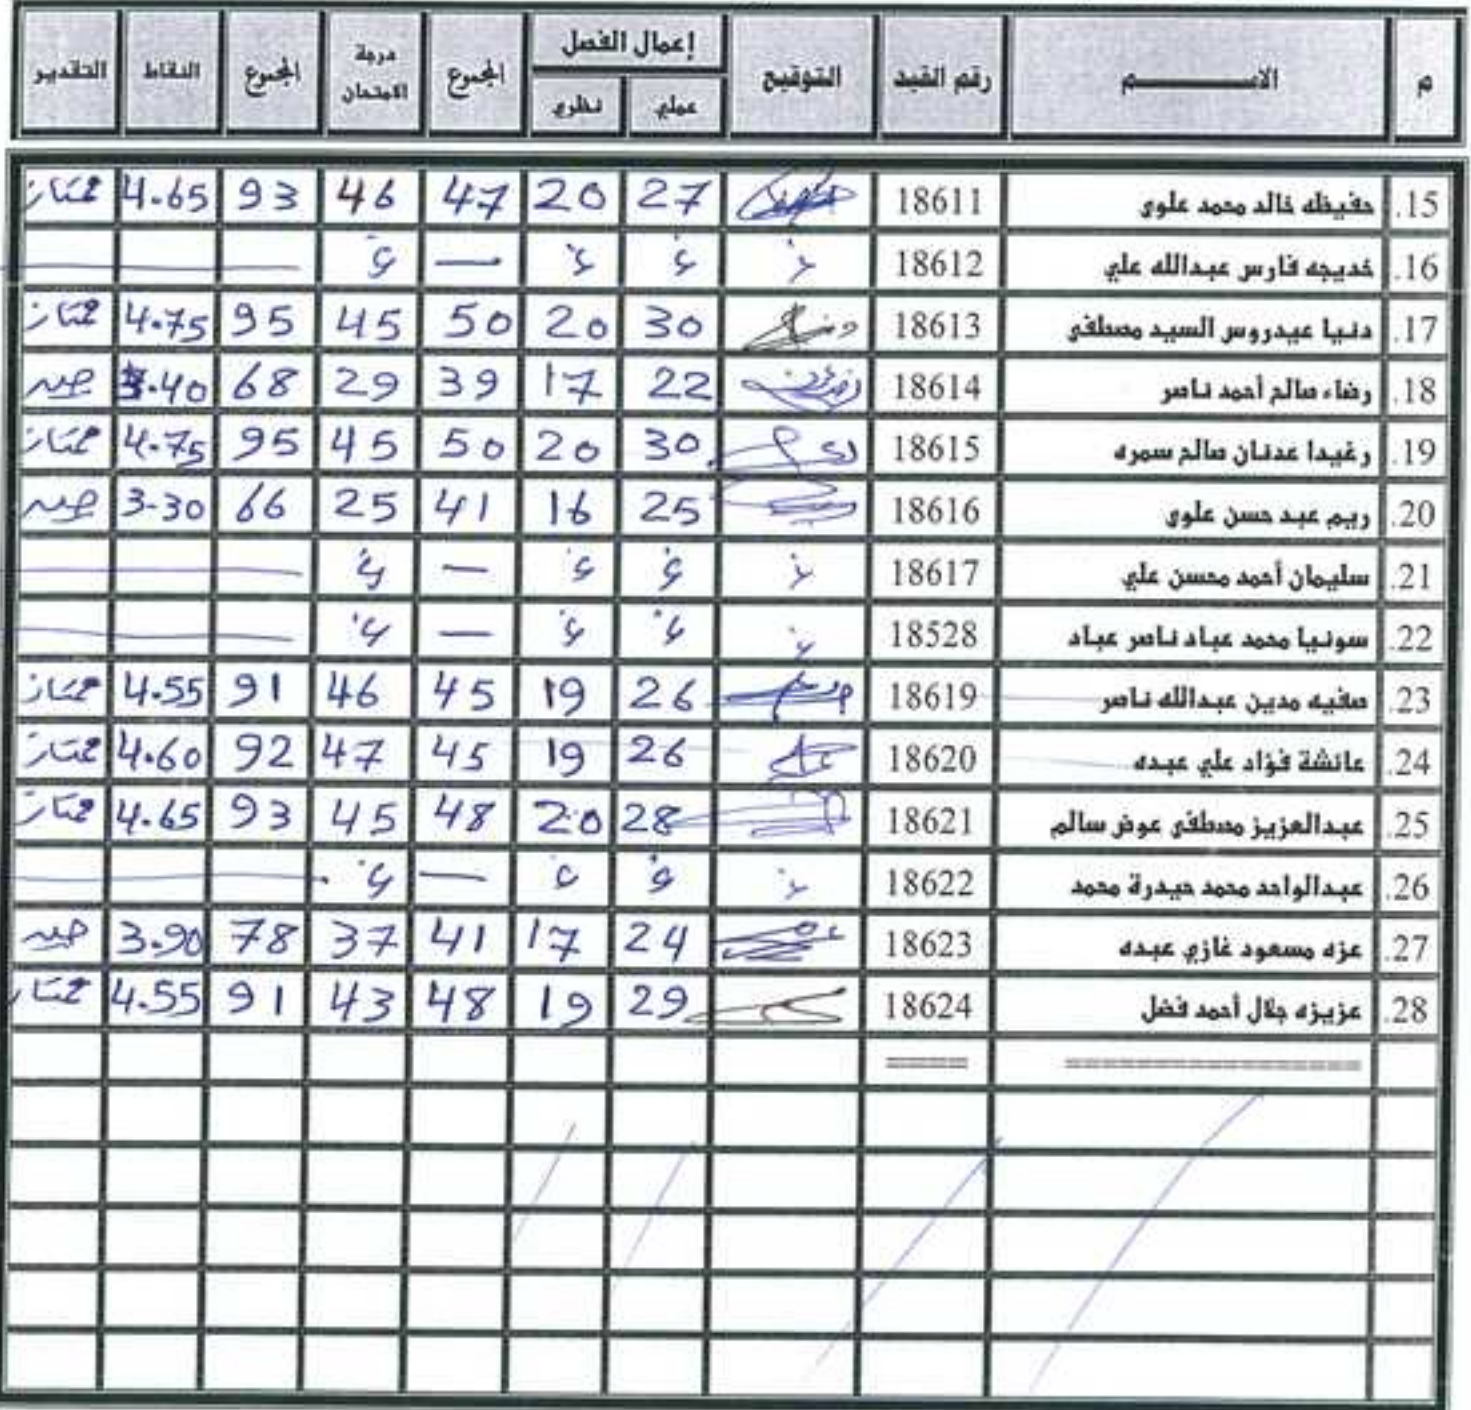 م الاســـــــم رقم القيد التوقيع إعمال الفصل المجموع درجة الامتحان المجموع النقاط التقدير
عملي نظري
15. حفيظه خالد محمد علوي 18611 27 20 47 46 93 4.65 ممتاز
16. خديجه فارس عبدالله علي 18612 غ غ غ — غ
17. دنيا عيدروس السيد مصطفى 18613 30 20 50 45 95 4.75 ممتاز
18. رضاء صالح أحمد ناصر 18614 22 17 39 29 68 3.40 جيد
19. رغيدا عدنان صالح سمره 18615 30 20 50 45 95 4.75 ممتاز
20. ريم عبد حسن علوي 18616 25 16 41 25 66 3.30 جيد
21. سليمان أحمد محسن علي 18617 غ غ غ — غ
22. سونيا محمد عباد ناصر عباد 18528 غ غ غ — غ
23. صفيه مدين عبدالله ناصر 18619 26 19 45 46 91 4.55 ممتاز
24. عائشة فؤاد علي عبده 18620 26 19 45 47 92 4.60 ممتاز
25. عبدالعزيز مصطفى عوض سالم 18621 28 20 48 45 93 4.65 ممتاز
26. عبدالواحد محمد حيدرة محمد 18622 غ غ غ — غ
27. عزه مسعود غازي عبده 18623 24 17 41 37 78 3.90 جيد
28. عزيزه جلال أحمد فضل 18624 29 19 48 43 91 4.55 ممتاز